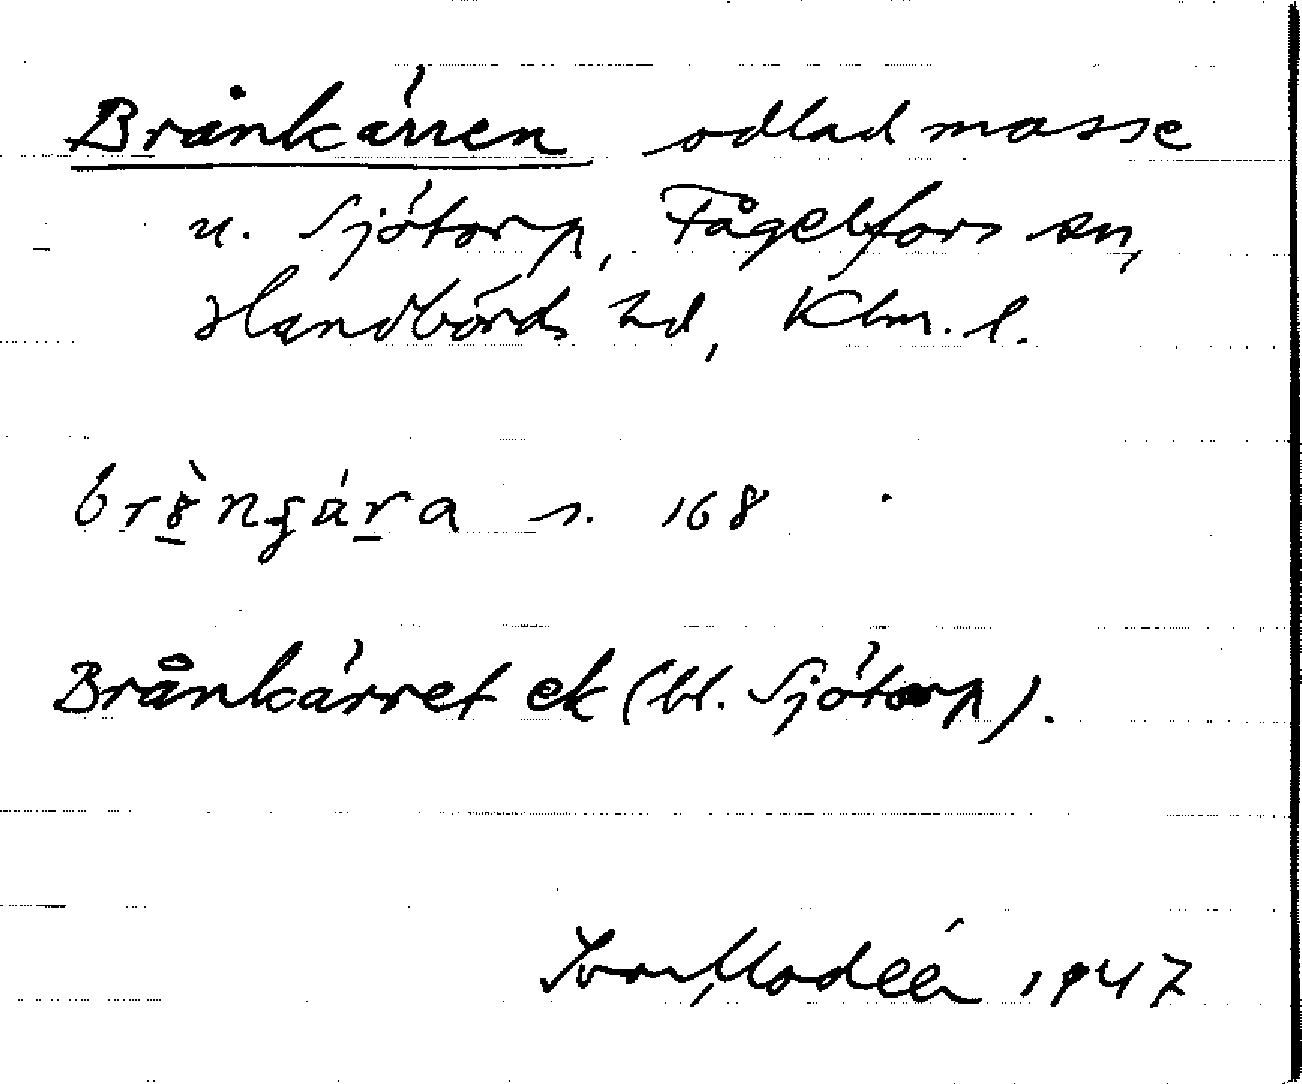 Brånkärren odlad mosse
u. Sjötorp, Fågelfors sn,
Handbörds hd, Klm. l.
s. 168
Brånkärret ek (bl. Sjötorp).
Ivar Modéer 1947